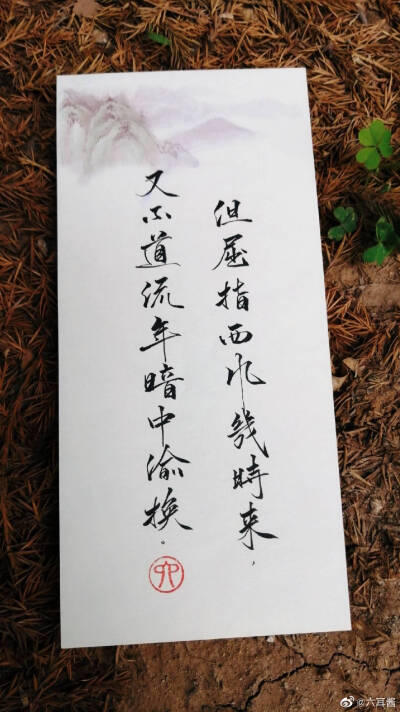 但屈指西风幾時来，
又不道流年暗中偷换。
六
@六耳酱